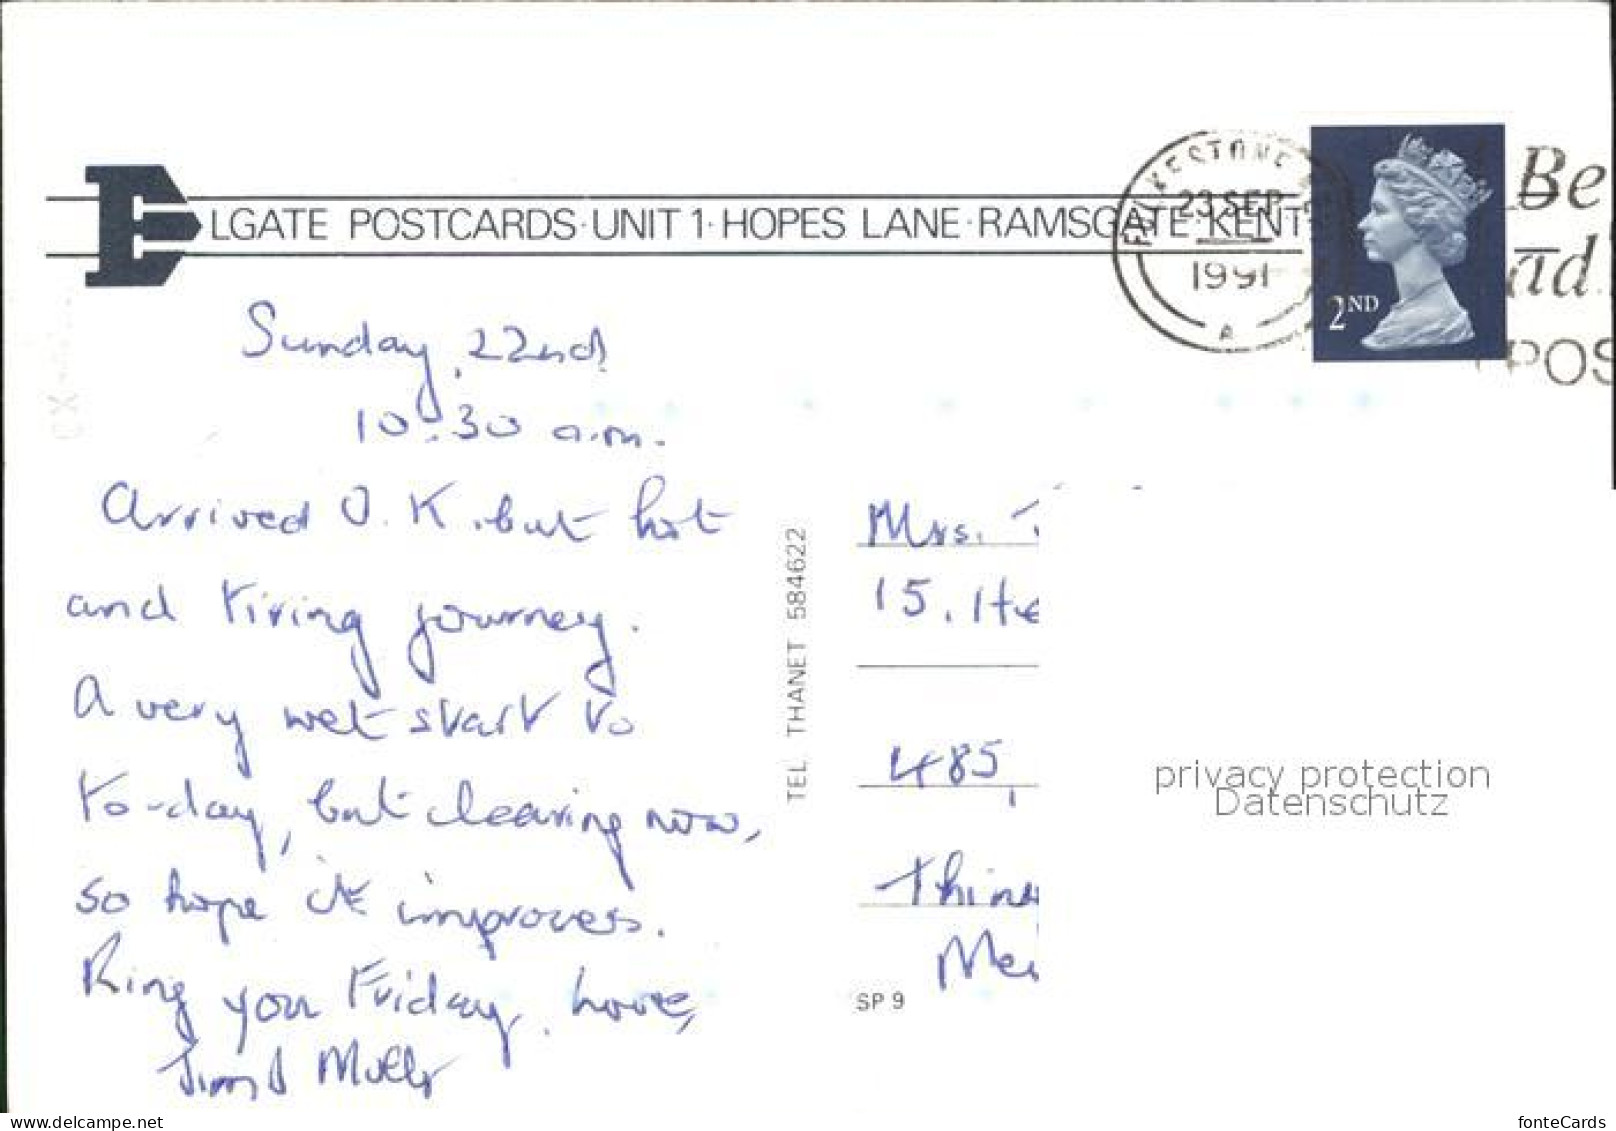 ELGATE POSTCARDS·UNIT 1·HOPES LANE·RAMSGATE·KENT
FOLKESTONE
23 SEP
1991
A
2ND
Be
POS
Sunday, 22nd
10.30 a.m.
Arrived O.K. but hot
and tiring journey.
A very wet start to
to-day, but clearing now,
so hope it improves.
Ring you Friday, love,
TEL THANET 584622
Mrs.
15.
485,
SP 9
privacy protection
Datenschutz
www.delcampe.net
fonteCards